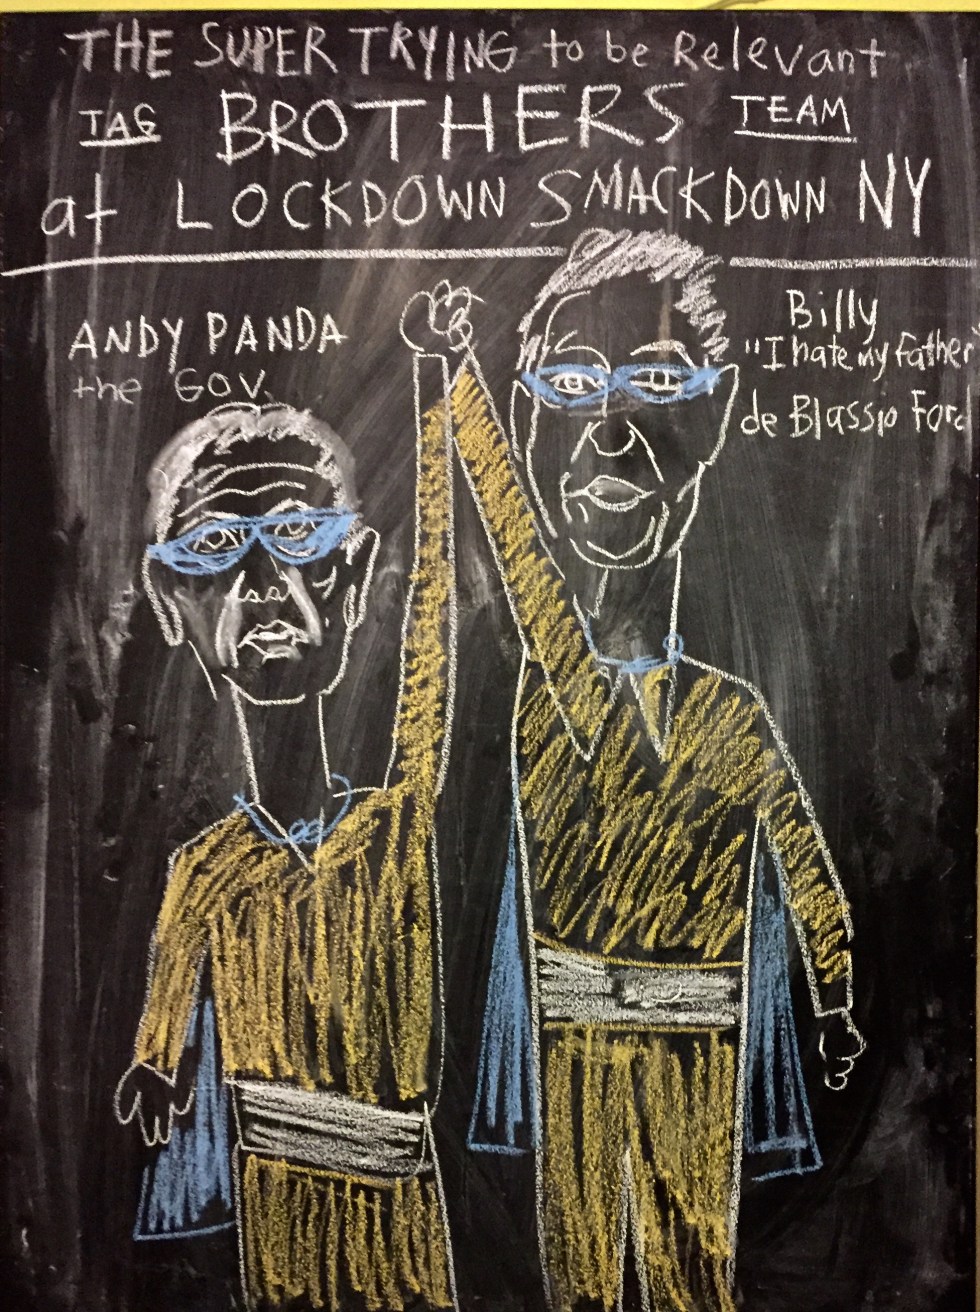 THE SUPER TRYING to be Relevant
TAG BROTHERS TEAM
at LOCKDOWN SMACKDOWN NY
ANDY PANDA
the GOV.
Billy
"I hate my father
de Blassio Ford